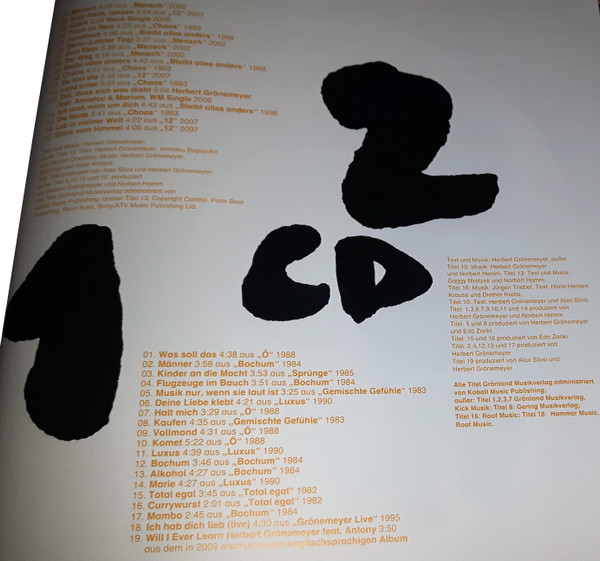 Mensch 4:05 aus „Mensch“ 2002
Kopf hoch, tanzen 3:54 aus „12“ 2007
Neue Single 2008
4:23 aus „Chaos“ 1993
4:09 aus „Bleibt alles anders“ 1998
(Letzter Tag) 3:27 aus „Mensch“ 2002
Zum Meer 3:39 aus „Mensch“ 2002
Der Weg 4:18 aus „Mensch“ 2002
Bleibt alles anders 4:42 aus „Bleibt alles anders“ 1998
Chaos 4:51 aus „Chaos“ 1993
Du bist die 3:45 aus „12“ 2007
Land unter 5:01 aus „Chaos“ 1993
Zeit, dass sich was dreht 5:04 Herbert Grönemeyer
feat. Amadou & Mariam, WM Single 2006
Ich dreh mich um dich 4:43 aus „Bleibt alles anders“ 1998
Die Härte 3:41 aus „Chaos“ 1993
Leb in meiner Welt 4:22 aus „12“ 2007
Stück vom Himmel 4:06 aus „12“ 2007
Musik: Herbert Grönemeyer;
Titel 13: Text: Herbert Grönemeyer, Amadou Bagayoko
Musik: Herbert Grönemeyer,
produziert von Alex Silva und Herbert Grönemeyer;
10,12 und 15, produziert
Grönemeyer und Norbert Hamm
Grönland Musikverlag administriert von
Music Publishing, ausser Titel 13: Copyright Control,
Sony/ATV Music Publishing Ltd.
2
1
CD
Text und Musik: Herbert Grönemeyer, außer
Titel 10: Musik: Herbert Grönemeyer
und Norbert Hamm; Titel 13: Text und Musik:
Gaggy Mrozeck und Norbert Hamm;
Titel 16: Musik: Jürgen Triebel, Text: Horst-Herbert
Krause und Diether Krebs;
Titel 19: Text: Herbert Grönemeyer und Alex Silva.
Titel: 1,3,6,7,9,10,11 und 14 produziert von
Herbert Grönemeyer und Norbert Hamm
Titel: 5 und 8 produziert von Herbert Grönemeyer
und Edo Zanki
Titel: 15 und 16 produziert von Edo Zanki
Titel: 2,4,12,13 und 17 produziert von
Herbert Grönemeyer
Titel 19 produziert von Alex Silva und
Herbert Grönemeyer
Alle Titel Grönland Musikverlag administriert
von Kobalt Music Publishing;
außer: Titel 1,2,3,7 Grönland Musikverlag,
Kick Musik; Titel 8: Gering Musikverlag;
Titel 16: Roof Music; Titel 18: Hammer Music,
Roof Music.
01. Was soll das 4:38 aus „Ö“ 1988
02. Männer 3:58 aus „Bochum“ 1984
03. Kinder an die Macht 3:53 aus „Sprünge“ 1985
04. Flugzeuge im Bauch 3:51 aus „Bochum“ 1984
05. Musik nur, wenn sie laut ist 3:25 aus „Gemischte Gefühle“ 1983
06. Deine Liebe klebt 4:21 aus „Luxus“ 1990
07. Halt mich 3:29 aus „Ö“ 1988
08. Kaufen 4:35 aus „Gemischte Gefühle“ 1983
09. Vollmond 4:31 aus „Ö“ 1988
10. Komet 5:22 aus „Ö“ 1988
11. Luxus 4:39 aus „Luxus“ 1990
12. Bochum 3:46 aus „Bochum“ 1984
13. Alkohol 4:27 aus „Bochum“ 1984
14. Marie 4:27 aus „Luxus“ 1990
15. Total egal 3:45 aus „Total egal“ 1982
16. Currywurst 2:01 aus „Total egal“ 1982
17. Mambo 2:45 aus „Bochum“ 1984
18. Ich hab dich lieb (live) 4:30 aus „Grönemeyer Live“ 1995
19. Will I Ever Learn Herbert Grönemeyer feat. Antony 3:50
aus dem in 2009 erscheinenden englischsprachigen Album